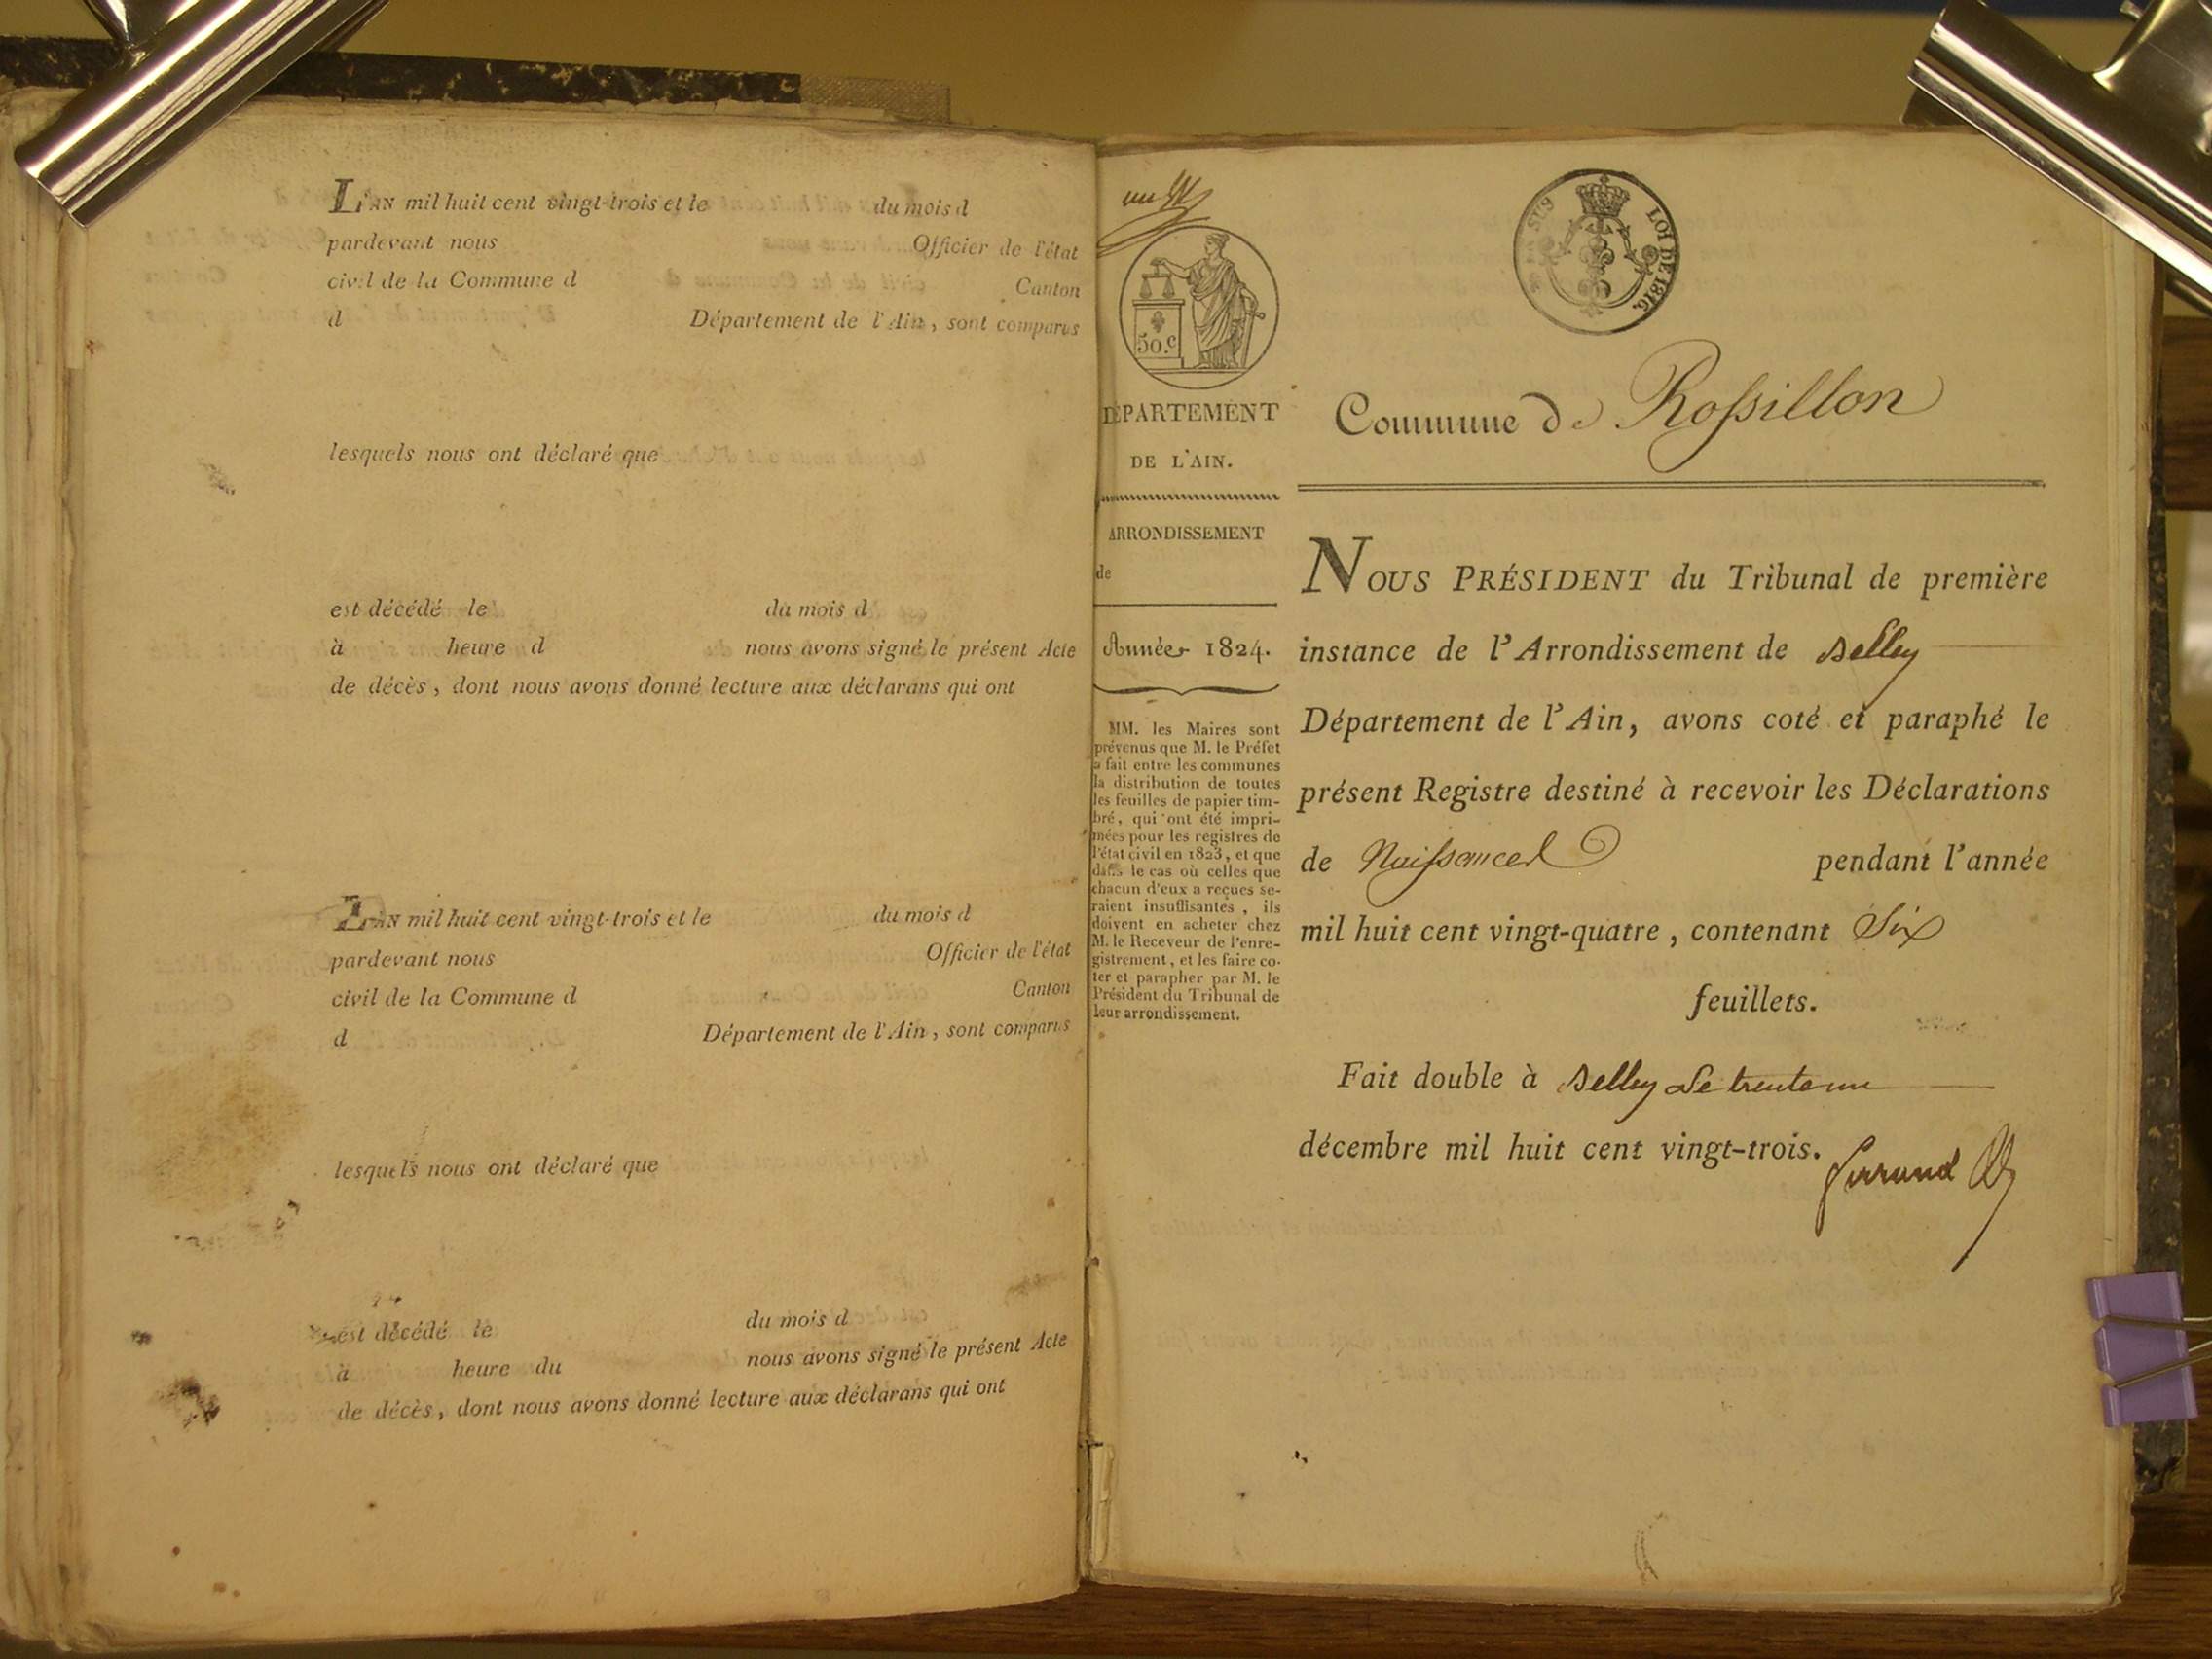 L'AN mil huit cent vingt-trois et le du mois d
pardevant nous Officier de l'état
civil de la Commune d Canton
d Département de l'Ain, sont comparus
lesquels nous ont déclaré que
est décédé le du mois d
à heure d nous avons signé le présent Acte
de décès, dont nous avons donné lecture aux déclarans qui ont
L'AN mil huit cent vingt-trois et le du mois d
pardevant nous Officier de l'état
civil de la Commune d Canton
d Département de l'Ain, sont comparus
lesquels nous ont déclaré que
est décédé le du mois d
à heure du nous avons signé le présent Acte
de décès, dont nous avons donné lecture aux déclarans qui ont
50.c
DÉPARTEMENT
DE L'AIN.
ARRONDISSEMENT
de
Année 1824.
MM. les Maires sont
prévenus que M. le Préfet
a fait entre les communes
la distribution de toutes
les feuilles de papier tim-
bré, qui ont été impri-
mées pour les registres de
l'état civil en 1823, et que
dans le cas où celles que
chacun d'eux a reçues se-
raient insuffisantes, ils
doivent en acheter chez
M. le Receveur de l'enre-
gistrement, et les faire co-
ter et parapher par M. le
Président du Tribunal de
leur arrondissement.
SUS LOI DE 1816.
Commune de Rossillon
NOUS PRÉSIDENT du Tribunal de première
instance de l'Arrondissement de Belley
Département de l'Ain, avons coté et paraphé le
présent Registre destiné à recevoir les Déclarations
de Naissances pendant l'année
mil huit cent vingt-quatre, contenant Six
feuillets.
Fait double à Belley Le trente un
décembre mil huit cent vingt-trois.